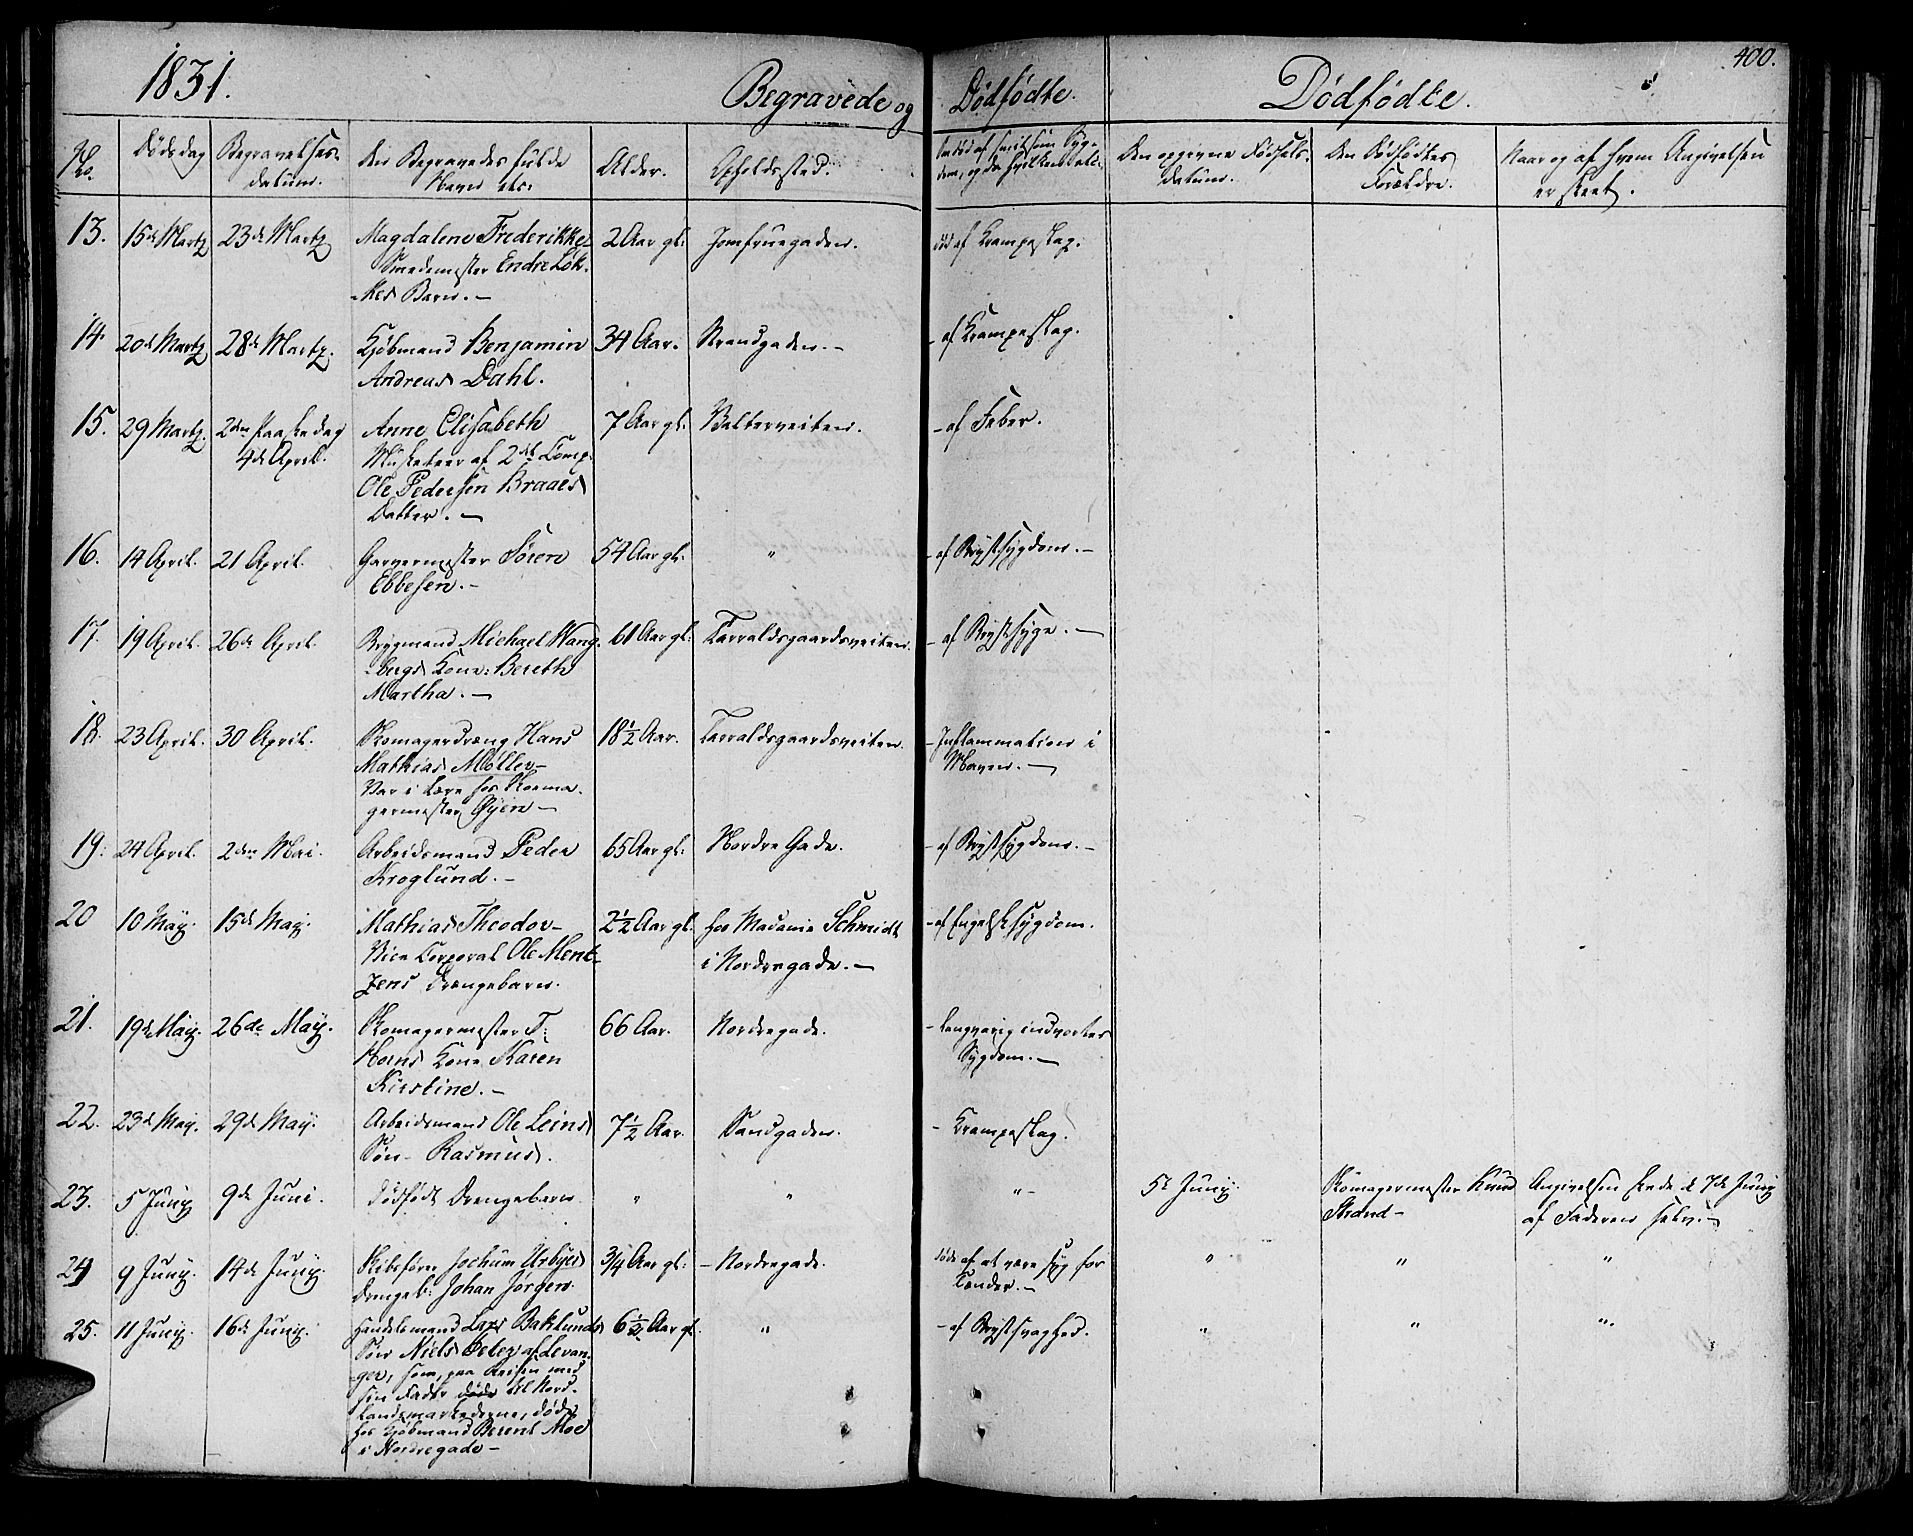 1831.
Begravede og Dødfødte.
Dødfødte.
400.
No.
Dødsdag
Begravelses-
datum.
Den Begravedes fulde
Navn etc.
Alder.
Opholdssted.
Den opgivne Fødsels-
datum.
Den Dødfødtes
Forældre.
Naar og af hvem Angivelsen
er skeet.
13. 15de Martz 23de Martz Magdalene Frederikke 2 Aar gl: Jomfruegaden. død af Krampeslag.
Smedemester Endre Løk-
kes Barn. —
14. 20de Martz 28de Martz. Kjøbmand Benjamin 34 Aar. Strandgaden. — - af Krampeslag.
Andreas Dahl.
15. 29 Martz. 2den Paaskedag Anne Elisabeth 7 Aar gl: - af Feber.
4de April. Musketeer af 2det Comp.
Ole Pedersen Braaes
Datter. —
16. 14 April. 21 April. Garvermester Søren 54 Aar gl: " - af Brystsygdom. —
Ebbesen. —
17. 19 April. 26de April. Brygmand Michael Wang- 61 Aar gl: Tarraldsgaardsveiten. - af Brystsyge. —
bergs Kone: Bereth
Martha. —
18. 23 April. 30 April. Skomagerdreng Hans 18½ Aar. Tarraldsgaardsveiten. - Inflammation i
Mathias Möller — Maven. —
Var i Lære hos Skoma-
germester Øyen —
19. 24 April. 2den Mai. Arbeidsmand Peder 65 Aar gl: Nordre Gade. - af Brystsygdom. —
Kroglund. —
20 10 May. 15de May. Mathias Theodor — 2½ Aar gl. hos Madame Schmidt - af Engelsksygdom.
Vice Corporal Ole Ment- i Nordregade. —
zens Drengebarn.
21. 19de May. 26de May. Skomagermester T: 66 Aar. Nordregade. - langvarig indvortes
Horns Kone Karen Sygdom. —
Kirstine. —
22. 23de May. 29de May. Arbeidsmand Ole Leins 7½ Aar. Sandgaden. - Krampeslag.
Søn — Rasmus.
23. 5 Juny 9de Juni. Dødfødt Drengebarn " " " 5t Juny. Skomagermester Knud Angivelsen skede d 7de Juny
Strand — af Faderen selv. —
24 9 Juny. 14de Juny. Skibsfører Jochum Ursbyes 3/4 Aar gl: - Nordregade. døde af at være syg for " " "
Drengeb: Johan Jørgen. Tænder. —
25. 11 Juny. 16de Juny. Handelsmand Lars Baklunds 6½ Aar gl. " - af Brystsvaghed. " " "
Søn Niels Peter af Levan-
ger, som, paa Reisen med
sin Fader til Nord-
landsmarkederne, døde
hos Kjøbmand Berent Moe
i Nordregade —